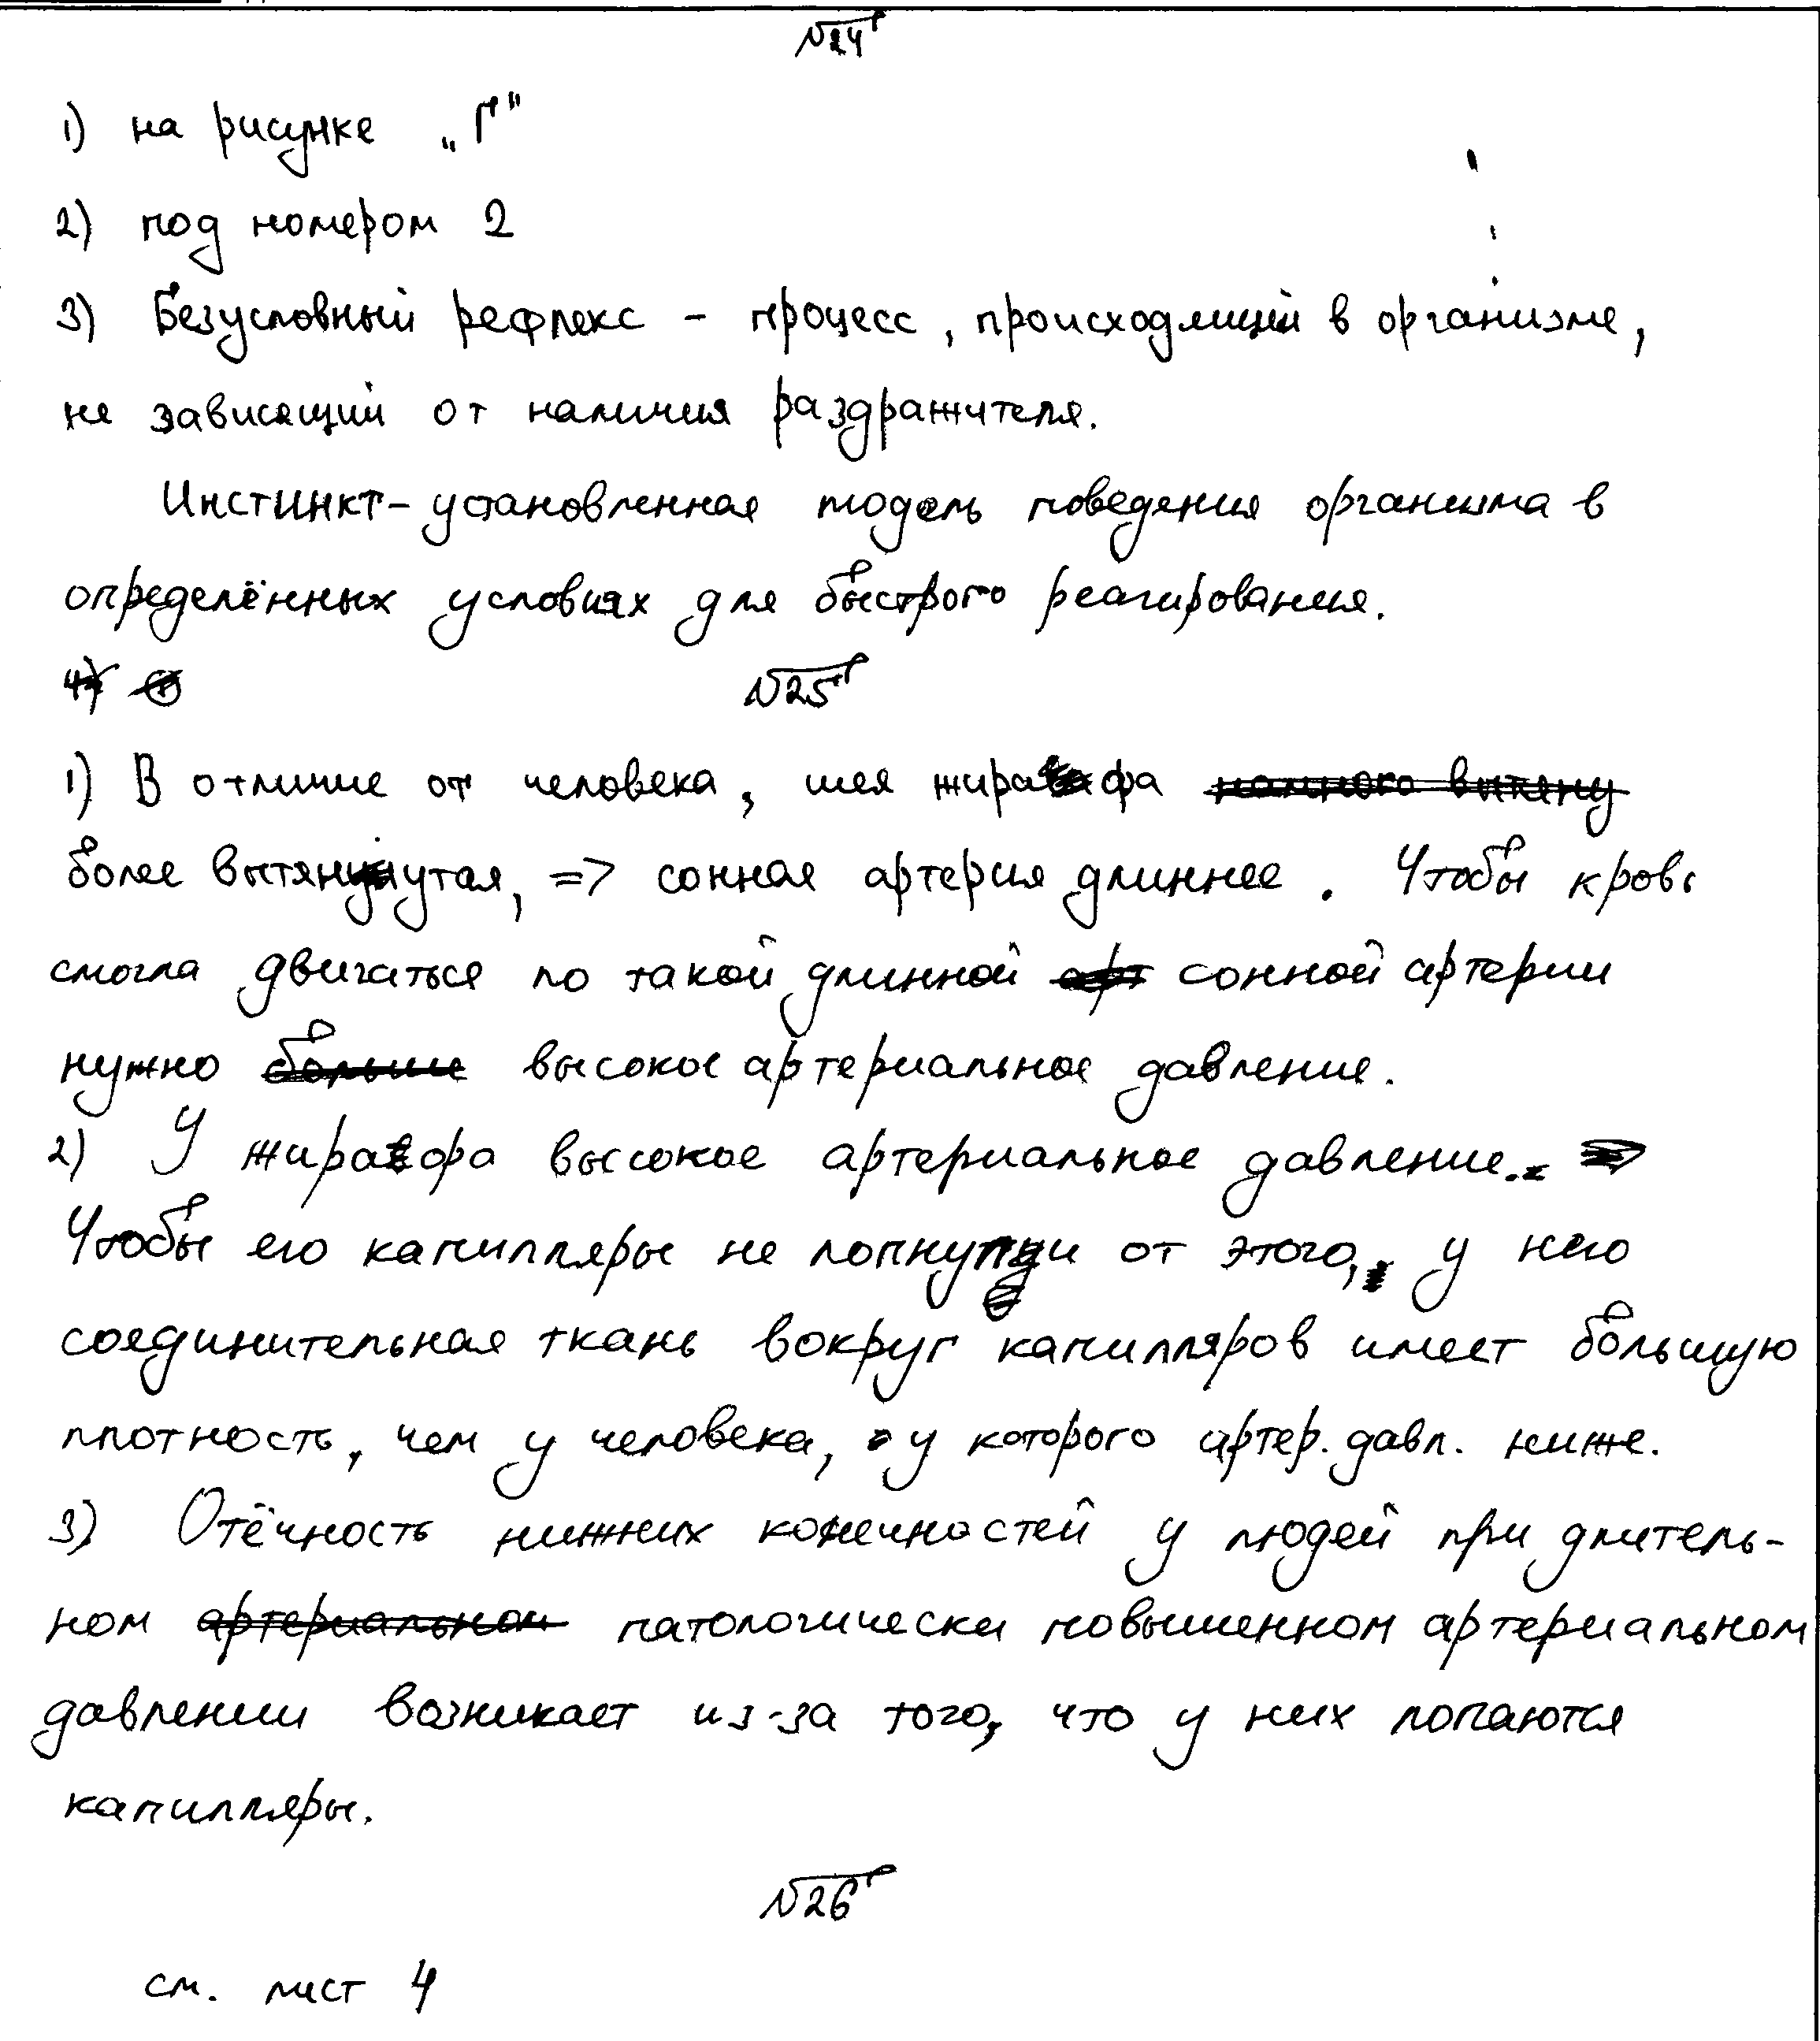 №24
1) на рисунке „Г"
2) под номером 2
3) Безусловный рефлекс - процесс, происходящий в организме,
не зависящий от наличия раздражителя.
Инстинкт - установленная модель поведения организма в
определённых условиях для быстрого реагирования.
4)
№25
1) В отличие от человека, шея жирафа намного вытяну
более вытянутая, => сонная артерия длиннее. Чтобы кровь
смогла двигаться по такой длинной арт сонной артерии
нужно больше высокое артериальное давление.
2) У жирафа высокое артериальное давление.
Чтобы его капилляры не лопнули от этого, у него
соединительная ткань вокруг капилляров имеет большую
плотность, чем у человека, у которого артер. давл. ниже.
3) Отёчность нижних конечностей у людей при длитель-
ном артериальном патологически повышенном артериальном
давлении возникает из-за того, что у них лопаются
капилляры.
№26
см. лист 4